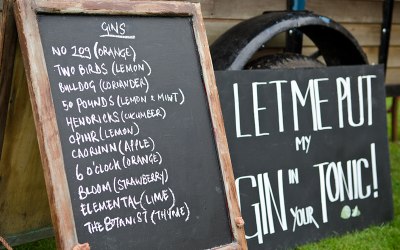 GINS
NO 209 (ORANGE)
TWO BIRDS (LEMON)
BULLDOG (CORIANDER)
50 POUNDS (LEMON & MINT)
HENDRICKS (CUCUMBER)
OPIHR (LEMON)
CAORUNN (APPLE)
6 O'CLOCK (ORANGE)
BLOOM (STRAWBERRY)
ELEMENTAL (LIME)
THE BOTANIST (THYME)
LET ME PUT
MY
GIN IN
YOUR TONIC!